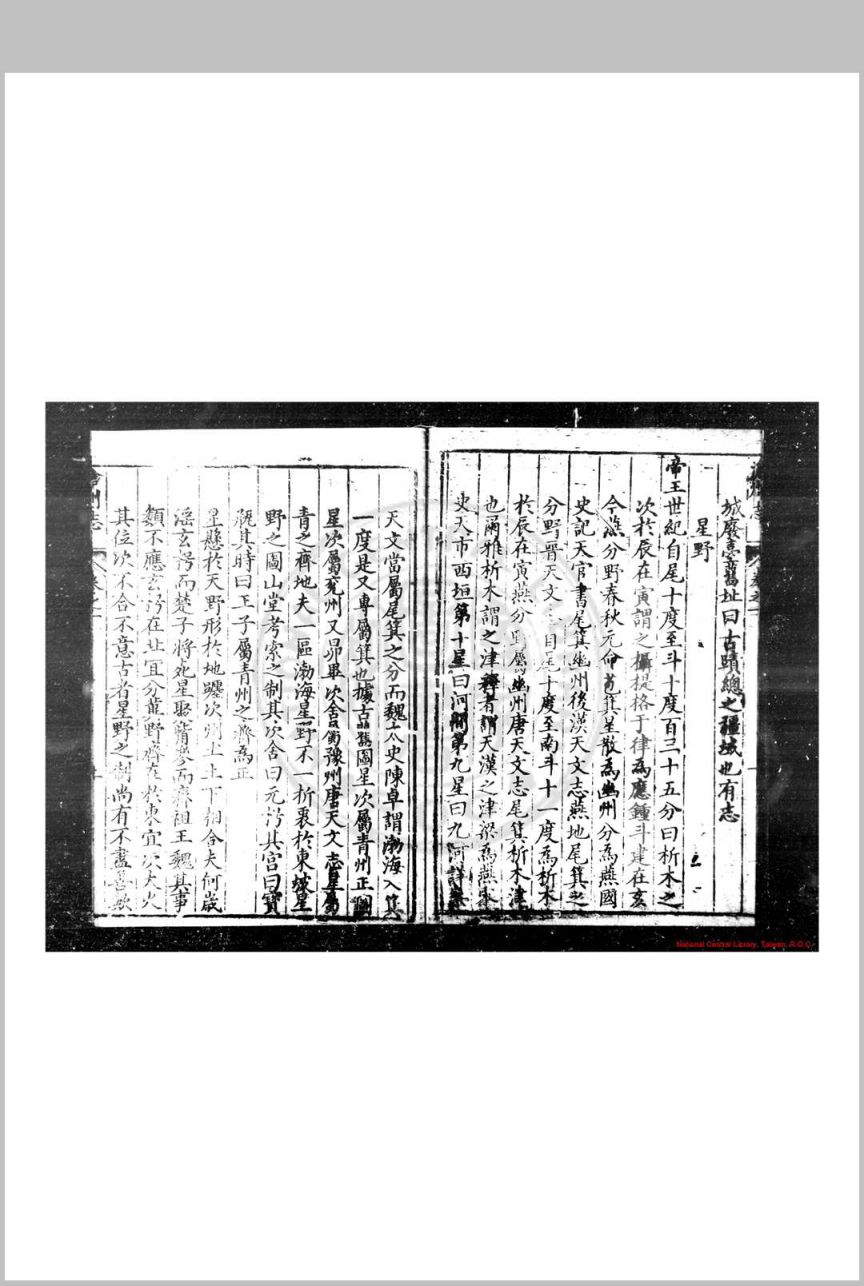 城廢惪舊址曰古蹟總之疆域也有志
星野
帝王世紀自尾十度至斗十度百三十五分曰析木之
次於辰在寅謂之攝提格于律為應鍾斗建在亥
今燕分野春秋元命苞箕星散為幽州分為燕國
史記天官書尾箕幽州後漢天文志燕地尾箕之
分野晋天文志自尾十度至南斗十一度為析木
於辰在寅燕分野屬幽州唐天文志尾箕析木津
也爾雅析木謂之津釋者謂天漢之津梁為燕
史天市西垣第十星曰河間第九星曰九河詳
天文當屬尾箕之分而魏太史陳卓謂渤海入箕
一度是又專屬箕也據古舊圖星次屬青州正
星次屬兗州又昴畢次舍屬豫州唐天文志星屬
青之齊地夫一區渤海星野不一折衷於東坡星
野之圖山堂考索之制其次舍曰元枵其宫曰寶
瓶其時曰王子屬青州之齊為正
星懸於天野形於地躔次州土上下相合夫何歲
滛玄枵而楚子將死星聚觜參而齊祖王魏其事
類不應玄枵在北宜分冀野齊在於東宜次大火
其位次不合不意古者星野之制尚有不盡善歟
National Central Library, Taiwan, R.O.C.